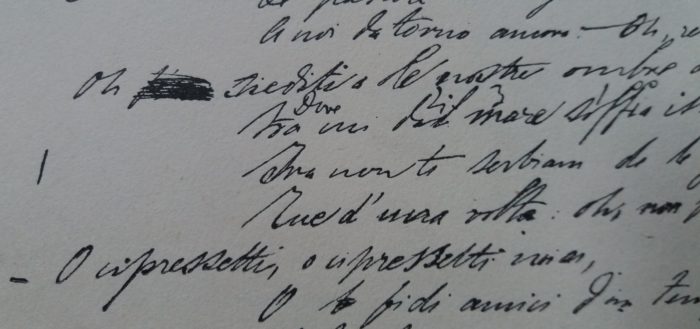 da torno ancora — Oh,
Oh siediti a le nostre ombre
Dove il
mare soffia
Ira non ti serbiam de
Tue d'una volta: oh, non
– O cipressetti, o cipressetti miei,
O fidi amici d'un tem